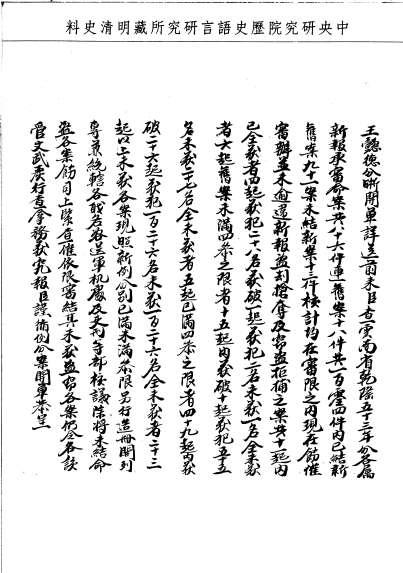 中央研究院歷史語言研究所藏明清史料
王懿德分晰開單詳送前來臣查雲南省乾隆五十三年分各屬
新報承審命案共八十六件連舊案十八件共一百零四件內已結新
舊案九十一案未結新案十三件核計均在審限之內現在飭催
審辦並未逾違新報盜刦搶奪及竊盜拒捕之案共十一起內
已全獲者四起獲犯二十八名獲破一起獲犯一名未獲一名全未獲
者六起舊案未滿四叅之限者十五起內獲破十起獲犯五十五
名未獲二十七名全未獲者五起已滿四叅之限者四十九起內獲
破二十六起獲犯一百二十六名未獲一百二十六名全未獲者二十三
起以上未獲各案現照新例分別已滿未滿叅限另行造冊開列
專兼統轄各職名咨送軍機處及吏兵等部核議除將未結命
盜各案飭司上緊查催依限審結其未獲盜竊各案仍令各該
管文武廣行查拿務獲究報臣謹循例分案開單恭呈